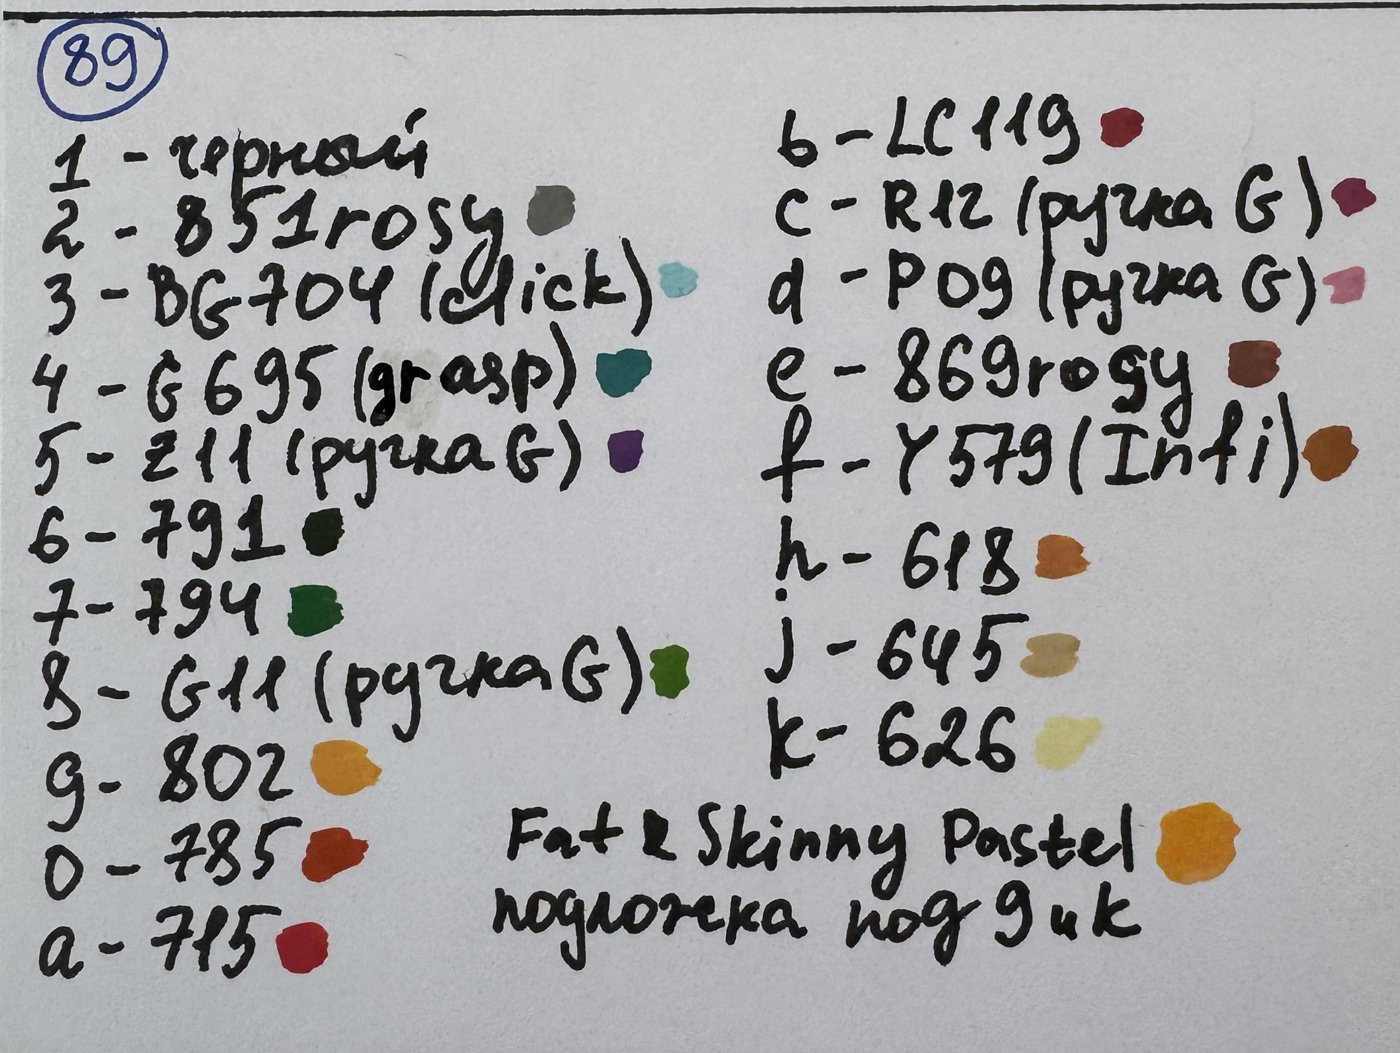 89
1 - черный
2 - 851rosy
3 - BG704 (click)
4 - G695 (grasp)
5 - Z11 (ручка G)
6 - 791
7 - 794
8 - G11 (ручка G)
9 - 802
0 - 785
a - 715
b - LC119
c - R12 (ручка G)
d - P09 (ручка G)
e - 869rosy
f - Y579 (Infi)
h - 618
j - 645
k - 626
Fat & Skinny Pastel
подложка под 9 и k